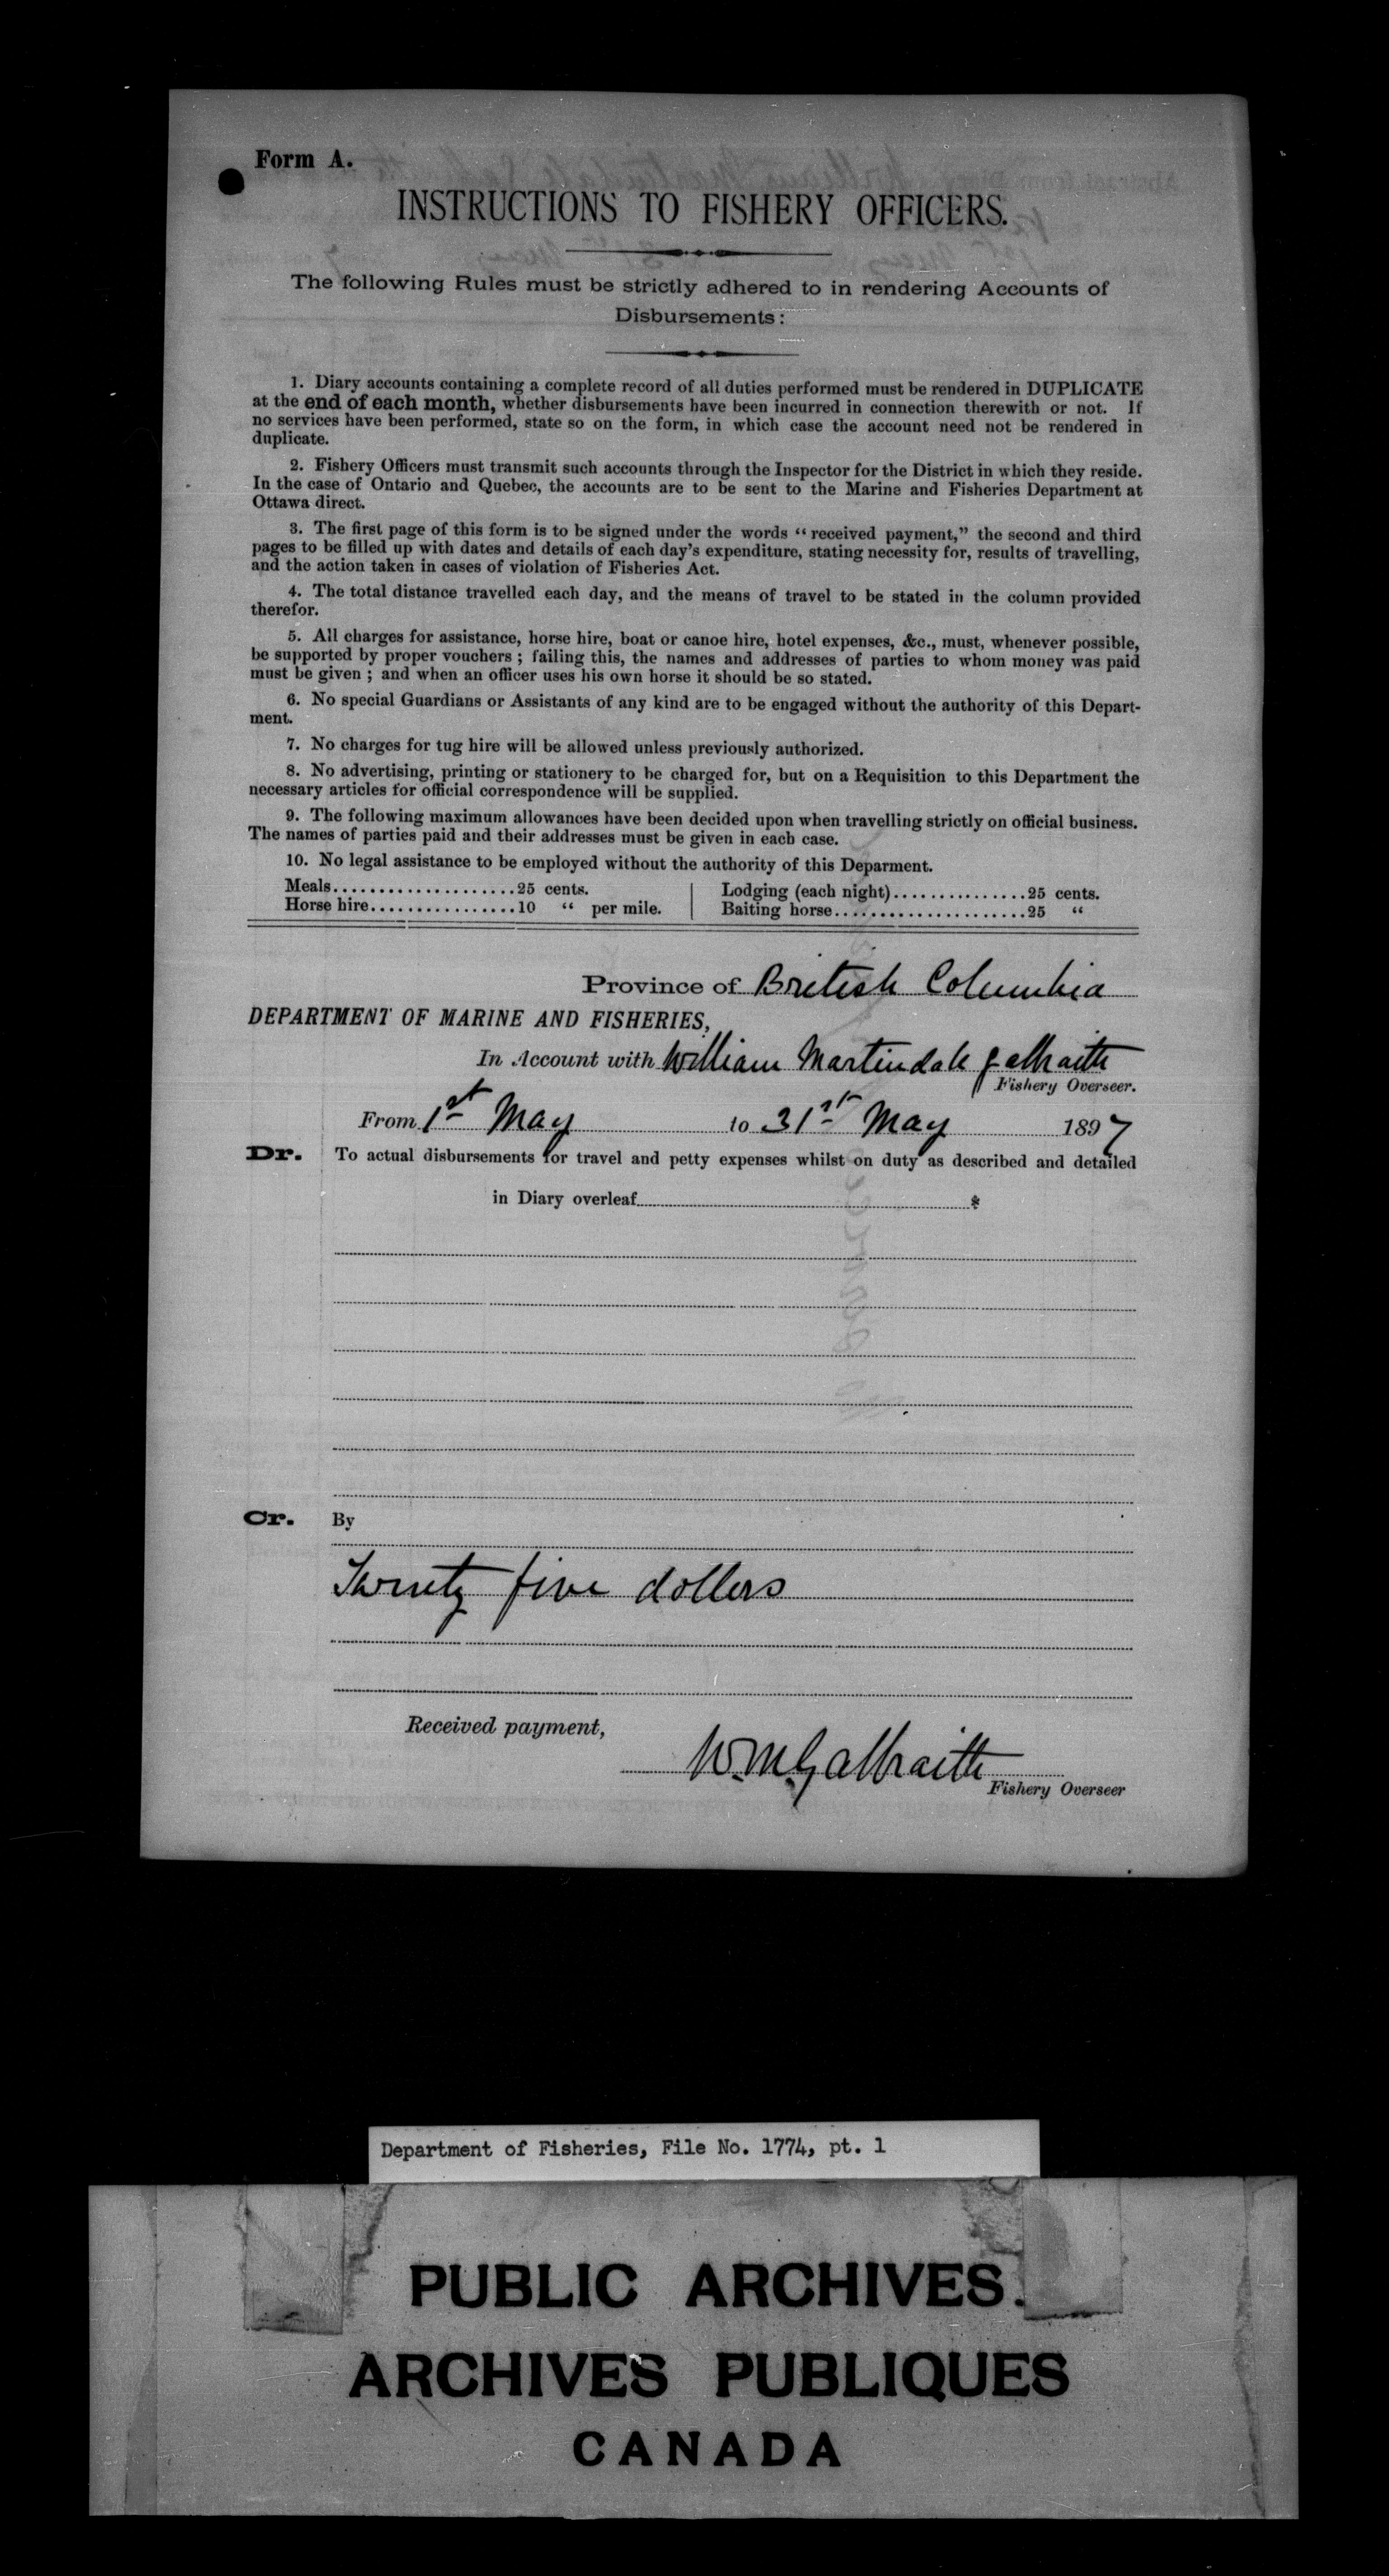 Form A.
INSTRUCTIONS TO FISHERY OFFICERS.
The following Rules must be strictly adhered to in rendering Accounts of
Disbursements:
1. Diary accounts containing a complete record of all duties performed must be rendered in DUPLICATE
at the end of each month, whether disbursements have been incurred in connection therewith or not. If
no services have been performed, state so on the form, in which case the account need not be rendered in
duplicate.
2. Fishery Officers must transmit such accounts through the Inspector for the District in which they reside.
In the case of Ontario and Quebec, the accounts are to be sent to the Marine and Fisheries Department at
Ottawa direct.
3. The first page of this form is to be signed under the words “received payment,” the second and third
pages to be filled up with dates and details of each day's expenditure, stating necessity for, results of travelling,
and the action taken in cases of violation of Fisheries Act.
4. The total distance travelled each day, and the means of travel to be stated in the column provided
therefor.
5. All charges for assistance, horse hire, boat or canoe hire, hotel expenses, &c., must, whenever possible,
be supported by proper vouchers ; failing this, the names and addresses of parties to whom money was paid
must be given ; and when an officer uses his own horse it should be so stated.
6. No special Guardians or Assistants of any kind are to be engaged without the authority of this Depart-
ment.
7. No charges for tug hire will be allowed unless previously authorized.
8. No advertising, printing or stationery to be charged for, but on a Requisition to this Department the
necessary articles for official correspondence will be supplied.
9. The following maximum allowances have been decided upon when travelling strictly on official business.
The names of parties paid and their addresses must be given in each case.
10. No legal assistance to be employed without the authority of this Deparment.
Meals....................25 cents. Lodging (each night)...............25 cents.
Horse hire................10 “ per mile. Baiting horse.....................25 “
Province of British Columbia
DEPARTMENT OF MARINE AND FISHERIES,
In Account with William Martindale Galbraith
Fishery Overseer.
From 1st May to 31st May 1897
Dr. To actual disbursements for travel and petty expenses whilst on duty as described and detailed
in Diary overleaf
Cr. By
Twenty five dollers
Received payment,
W. M. Galbraith
Fishery Overseer
Department of Fisheries, File No. 1774, pt. 1
PUBLIC ARCHIVES.
ARCHIVES PUBLIQUES
CANADA